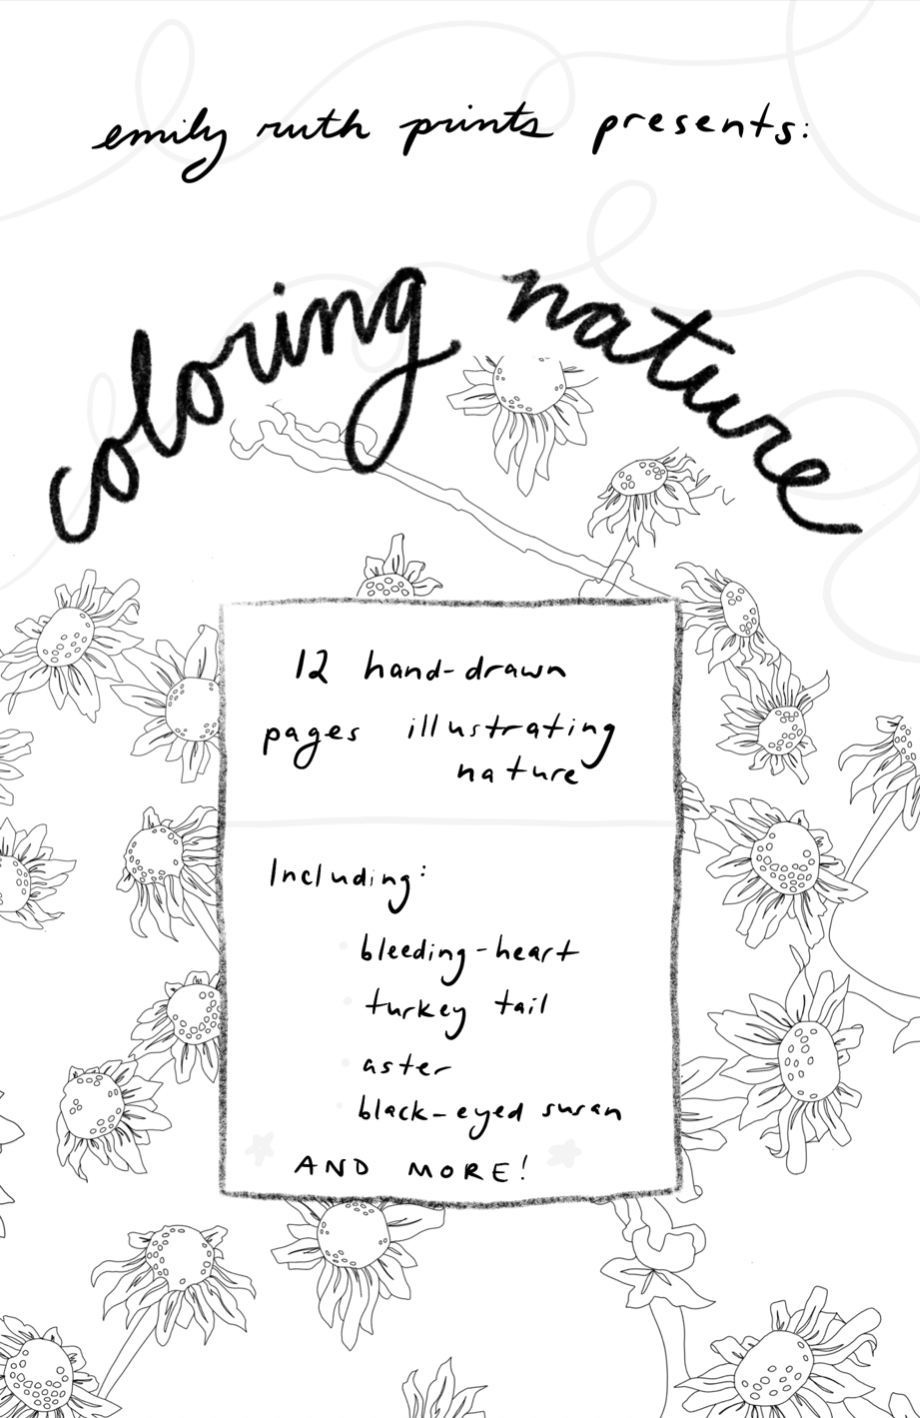 emily ruth prints presents:
coloring nature
12 hand-drawn
pages illustrating
nature
Including:
bleeding-heart
turkey tail
aster
black-eyed susan
AND MORE!